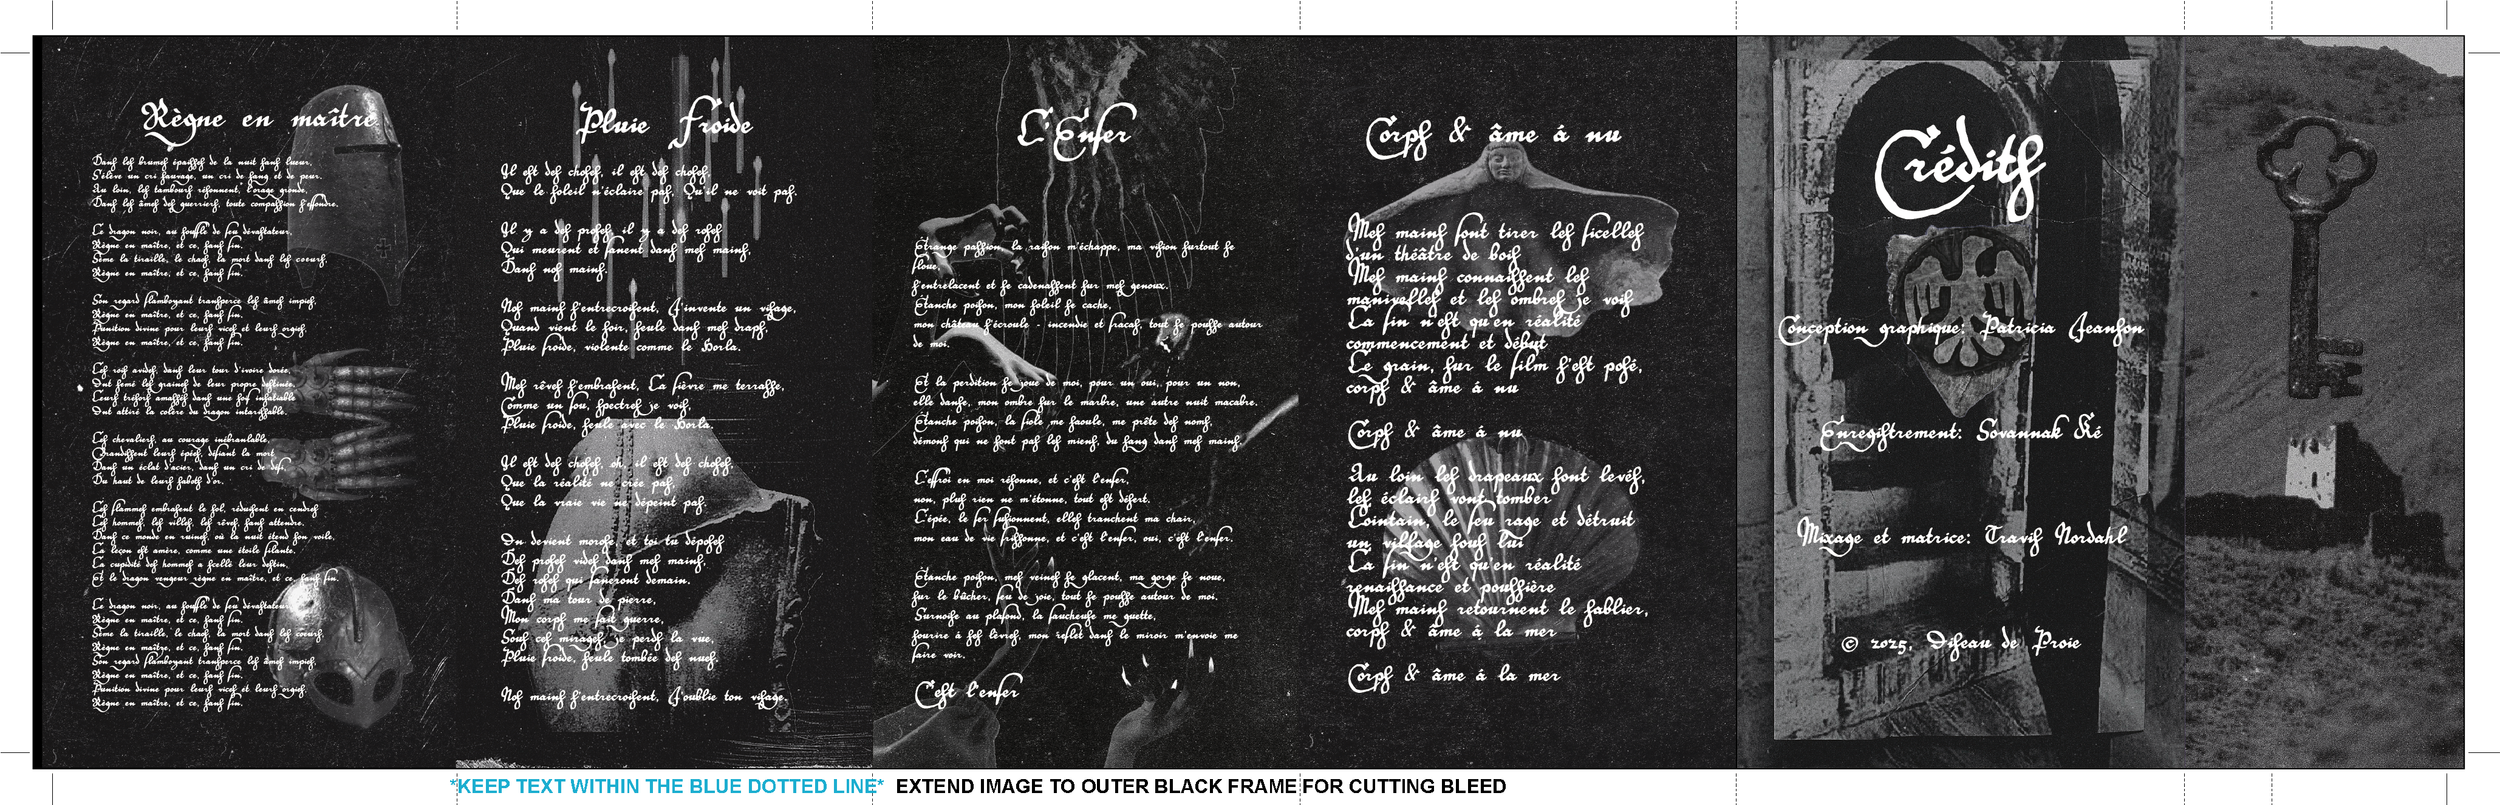 Règne en maître
Dans les brumes épaisses de la nuit sans lueur,
S'élève un cri sauvage, un cri de sang et de peur.
Au loin, les tambours résonnent, l'orage gronde,
Dans les âmes des guerriers, toute compassion s'effondre.
Le dragon noir, au souffle de feu dévastateur,
Règne en maître, et ce, sans fin.
Sème la tiraille, le chaos, la mort dans les coeurs.
Règne en maître, et ce, sans fin.
Son regard flamboyant transperce les âmes impies,
Règne en maître, et ce, sans fin.
Punition divine pour leurs vices et leurs orgies,
Règne en maître, et ce, sans fin.
Les rois avides, dans leur tour d'ivoire dorée,
Ont semé les graines de leur propre destinée.
Leurs trésors amassés dans une soif insatiable
Ont attiré la colère du dragon intarissable.
Les chevaliers, au courage inébranlable,
Brandissent leurs épées, défiant la mort
Dans un éclat d'acier, dans un cri de défi,
Du haut de leurs sabots d'or.
Les flammes embrasent le sol, réduisent en cendres
Les hommes, les villes, les rêves, sans attendre.
Dans ce monde en ruines, où la nuit étend son voile,
La leçon est amère, comme une étoile filante,
La cupidité des hommes a scellé leur destin,
Et le dragon vengeur règne en maître, et ce, sans fin.
Le dragon noir, au souffle de feu dévastateur
Règne en maître, et ce, sans fin.
Sème la tiraille, le chaos, la mort dans les coeurs.
Règne en maître, et ce, sans fin.
Son regard flamboyant transperce les âmes impies,
Règne en maître, et ce, sans fin.
Punition divine pour leurs vices et leurs orgies,
Règne en maître, et ce, sans fin.
Pluie froide
Il est des choses, il est des choses,
Que le soleil n'éclaire pas, Qu'il ne voit pas.
Il y a des proses, il y a des roses
Qui meurent et fanent dans mes mains,
Dans nos mains.
Nos mains s'entrecroisent, J'invente un visage,
Quand vient le soir, seule dans mes draps,
Pluie froide, violente comme le Horla.
Mes rêves s'embrasent, La fièvre me terrasse,
Comme un fou, spectres je vois,
Pluie froide, seule avec le Horla.
Il est des choses, oh, il est des choses,
Que la réalité ne crée pas,
Que la vraie vie ne dépeint pas.
On devient morose, et toi tu déposes
Des proses vides dans mes mains,
Des roses qui faneront demain.
Dans ma tour de pierre,
Mon corps me fait guerre,
Sous ces mirages, je perds la vue,
Pluie froide, seule tombée des nues.
Nos mains s'entrecroisent, J'oublie ton visage.
L'Enfer
Étrange passion, la raison m'échappe, ma vision surtout se
floue,
s'entrelacent et se cadenassent sur mes genoux.
Étanche poison, mon soleil se cache,
mon château s'écroule - incendie et fracas, tout se pousse autour
de moi.
Et la perdition se joue de moi, pour un oui, pour un non,
elle danse, mon ombre sur le marbre, une autre nuit macabre.
Étanche poison, la fiole me saoule, me prête des noms,
démons qui ne sont pas les miens, du sang dans mes mains.
L'effroi en moi résonne, et c'est l'enfer,
non, plus rien ne m'étonne, tout est désert.
L'épée, le fer fusionnent, elles tranchent ma chair,
mon eau de vie frissonne, et c'est l'enfer, oui, c'est l'enfer.
Étanche poison, mes veines se glacent, ma gorge se noue,
sur le bûcher, feu de joie, tout se pousse autour de moi.
Surnoise au plafond, la faucheuse me guette,
sourire à ses lèvres, mon reflet dans le miroir m'envoie me
faire voir.
C'est l'enfer
Corps & âme à nu
Mes mains font tirer les ficelles
d'un théâtre de bois
Mes mains connaissent les
manivelles et les ombres je vois
La fin n'est qu'en réalité
commencement et début
Le grain, sur le film s'est posé,
corps & âme à nu
Corps & âme à nu
Au loin les drapeaux sont levés,
les éclairs vont tomber
Lointain, le feu rage et détruit
un village sous lui
La fin n'est qu'en réalité
renaissance et poussière
Mes mains retournent le sablier,
corps & âme à la mer
Corps & âme à la mer
Crédits
Conception graphique: Patricia Jeanson
Enregistrement: Sovannak Ké
Mixage et matrice: Travis Nordahl
© 2025, Oiseau de Proie
*KEEP TEXT WITHIN THE BLUE DOTTED LINE* EXTEND IMAGE TO OUTER BLACK FRAME FOR CUTTING BLEED